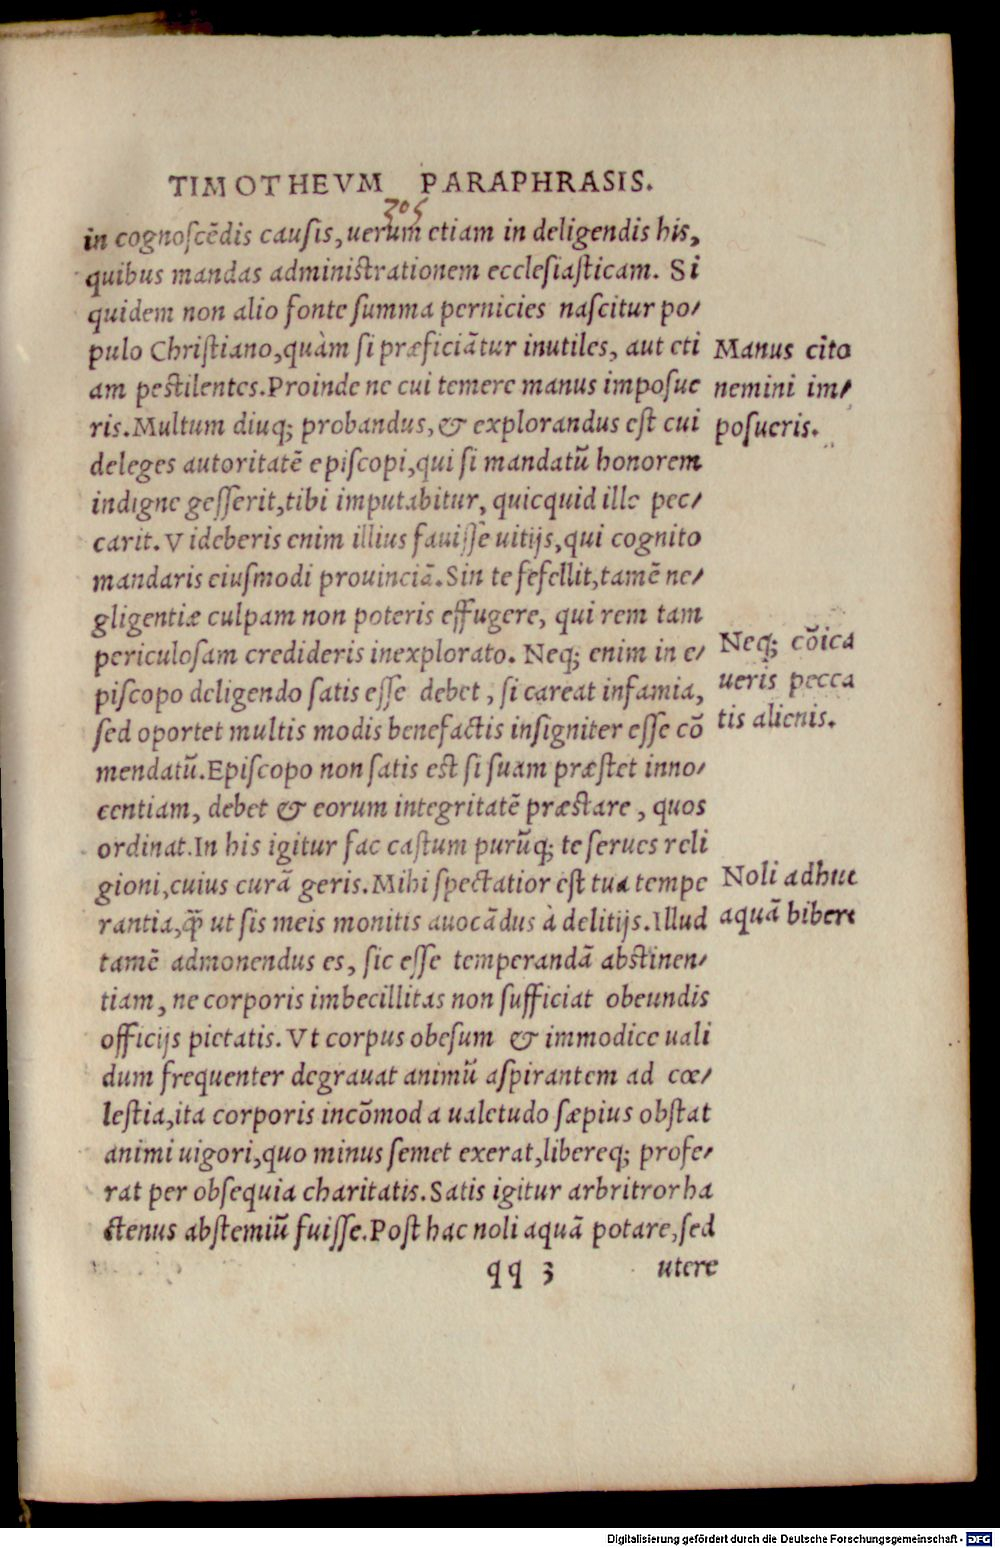 TIMOTHEVM PARAPHRASIS.
305
in cognoscēdis causis, uerum etiam in deligendis his,
quibus mandas administrationem ecclesiasticam. Si
quidem non alio fonte summa pernicies nascitur po/
pulo Christiano, quàm si præficiātur inutiles, aut eti
am pestilentes. Proinde ne cui temere manus imposue
ris. Multum diuq; probandus, & explorandus est cui
deleges autoritatē episcopi, qui si mandatū honorem
indigne gesserit, tibi imputabitur, quicquid ille pec/
carit. Videberis enim illius fauisse uitijs, qui cognito
mandaris eiusmodi prouinciā. Sin te fefellit, tamē ne/
gligentiæ culpam non poteris effugere, qui rem tam
periculosam credideris inexplorato. Neq; enim in e/
piscopo deligendo satis esse debet, si careat infamia,
sed oportet multis modis benefactis insigniter esse cō
mendatū. Episcopo non satis est si suam præstet inno/
centiam, debet & eorum integritatē præstare, quos
ordinat. In his igitur fac castum purūq; te serues reli
gioni, cuius curā geris. Mihi spectatior est tua tempe
rantia, q̄ꝑ ut sis meis monitis auocādus à delitijs. Illud
tamē admonendus es, sic esse temperandā abstinen/
tiam, ne corporis imbecillitas non sufficiat obeundis
officijs pietatis. Vt corpus obesum & immodice uali
dum frequenter degrauat animū aspirantem ad cœ/
lestia, ita corporis incōmoda ualetudo sæpius obstat
animi uigori, quo minus semet exerat, libereq; profe/
rat per obsequia charitatis. Satis igitur arbritror ha
ctenus abstemiū fuisse. Post hac noli aquā potare, sed
qq 3 utere
Manus cito
nemini im/
posueris.
Neq; cōica
ueris pecca
tis alienis.
Noli adhuc
aquā bibere
Digitalisierung gefördert durch die Deutsche Forschungsgemeinschaft - DFG